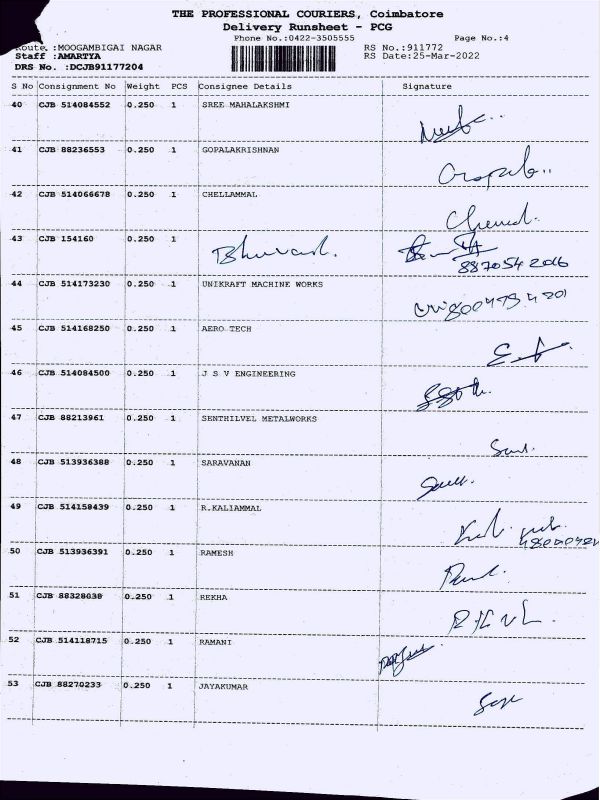 THE PROFESSIONAL COURIERS, Coimbatore
Delivery Runsheet - PCG
Phone No.:0422-3505555 Page No.:4
Route :MOOGAMBIGAI NAGAR RS No.:911772
Staff :AMARTYA RS Date:25-Mar-2022
DRS No. :DCJB91177204
S No Consignment No Weight PCS Consignee Details Signature
40 CJB 514084552 0.250 1 SREE MAHALAKSHMI
41 CJB 88236553 0.250 1 GOPALAKRISHNAN
42 CJB 514066678 0.250 1 CHELLAMMAL
43 CJB 154160 0.250 1
8870542066
44 CJB 514173230 0.250 1 UNIKRAFT MACHINE WORKS
45 CJB 514168250 0.250 1 AERO TECH
46 CJB 514084500 0.250 1 J S V ENGINEERING
47 CJB 88213961 0.250 1 SENTHILVEL METALWORKS
48 CJB 513936388 0.250 1 SARAVANAN
49 CJB 514158439 0.250 1 R.KALIAMMAL
50 CJB 513936391 0.250 1 RAMESH
51 CJB 88328038 0.250 1 REKHA
52 CJB 514118715 0.250 1 RAMANI
53 CJB 88270233 0.250 1 JAYAKUMAR